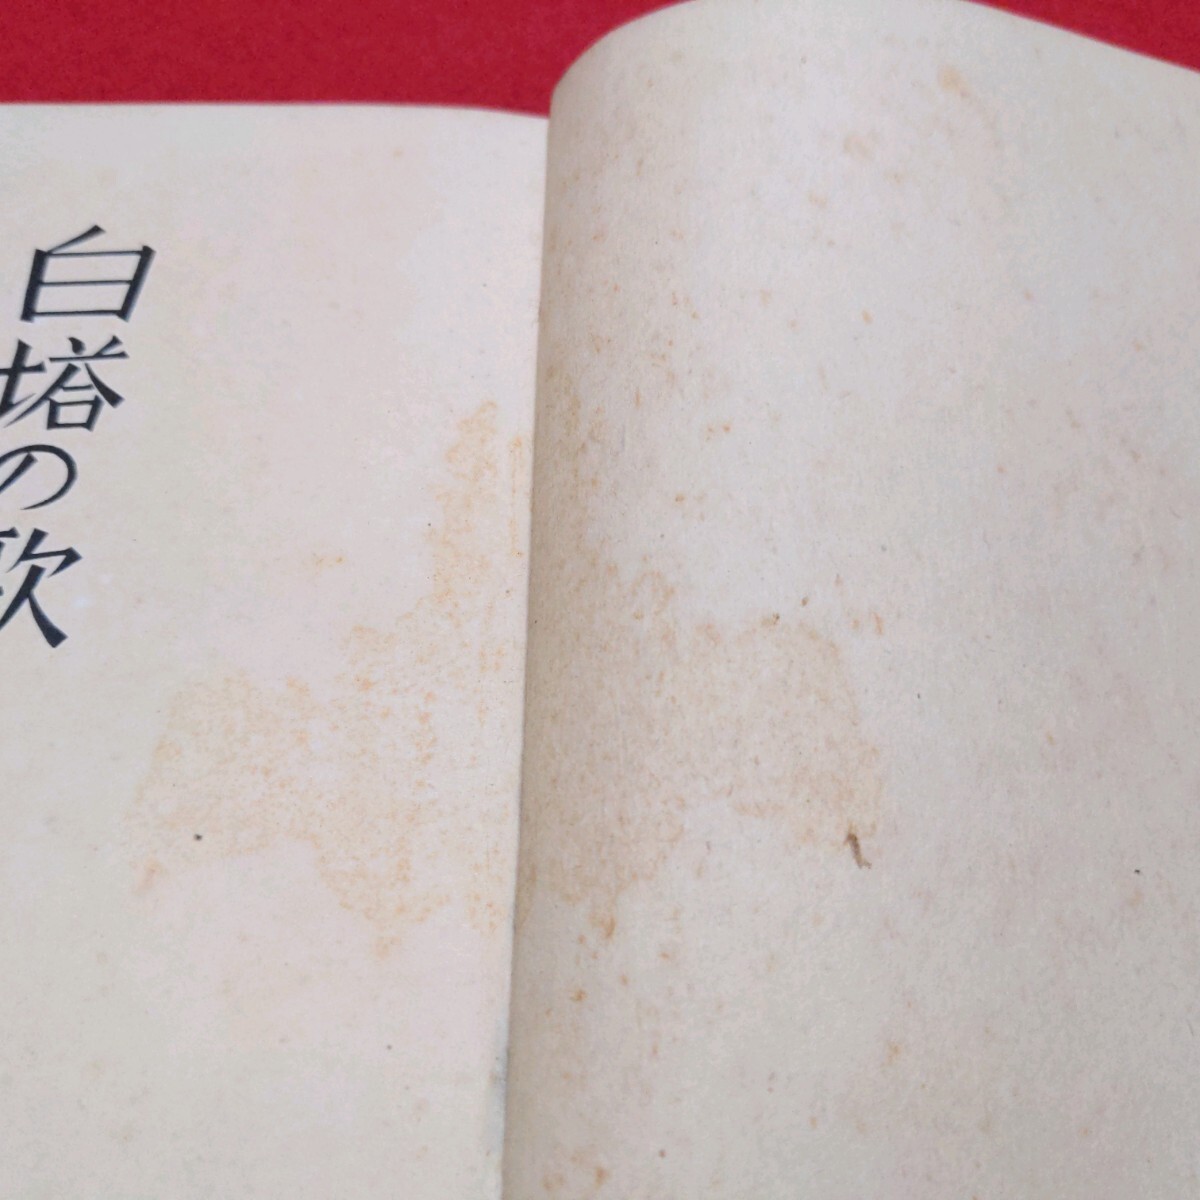 白塔の歌